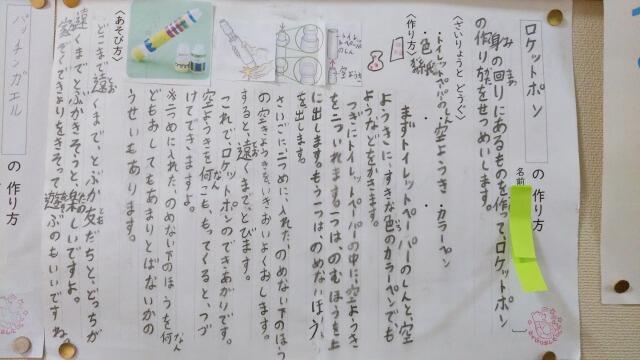 ロケットポン の作り方
名前
身の回りにあるものを作ってロケットポン
の作り方をせつめいします。
〈ざいりょうと どうぐ〉
・トイレットペーパーのしん・空ようき・カラーペン
・色紙
〈作り方〉
まずトイレットペーパーのしんと、空
ようきに、すきな色のカラーペンでも
ようなどをかきます。
つぎにトイレットペーパーの中に空ようき
を二ついれます。一つは、のむほうを上
に出します。もう一つは、のめないほう
を出します。
さいごに二つめに、入れた、のめない下のほう
の空きようきを、いきおいよくおします。
すると、遠くまで、とびます。
これで、ロケットポンのできあがりです。
空ようきを何こも、もってくると、つづ
けてできますよ。
※二つめに入れた、のめない下のほうを何
どもおしてもあまりとばないかの
うせいもあります。
〈あそび方〉
どこまで遠くまで、とぶか友だちと、どっちが
遠くまでとぶかきそうと楽しいですよ。
家ぞくできょりをきそって遊ぶのもいいですね。
トイレットペーパーのしん
空ようき
パッチンガエル の作り方